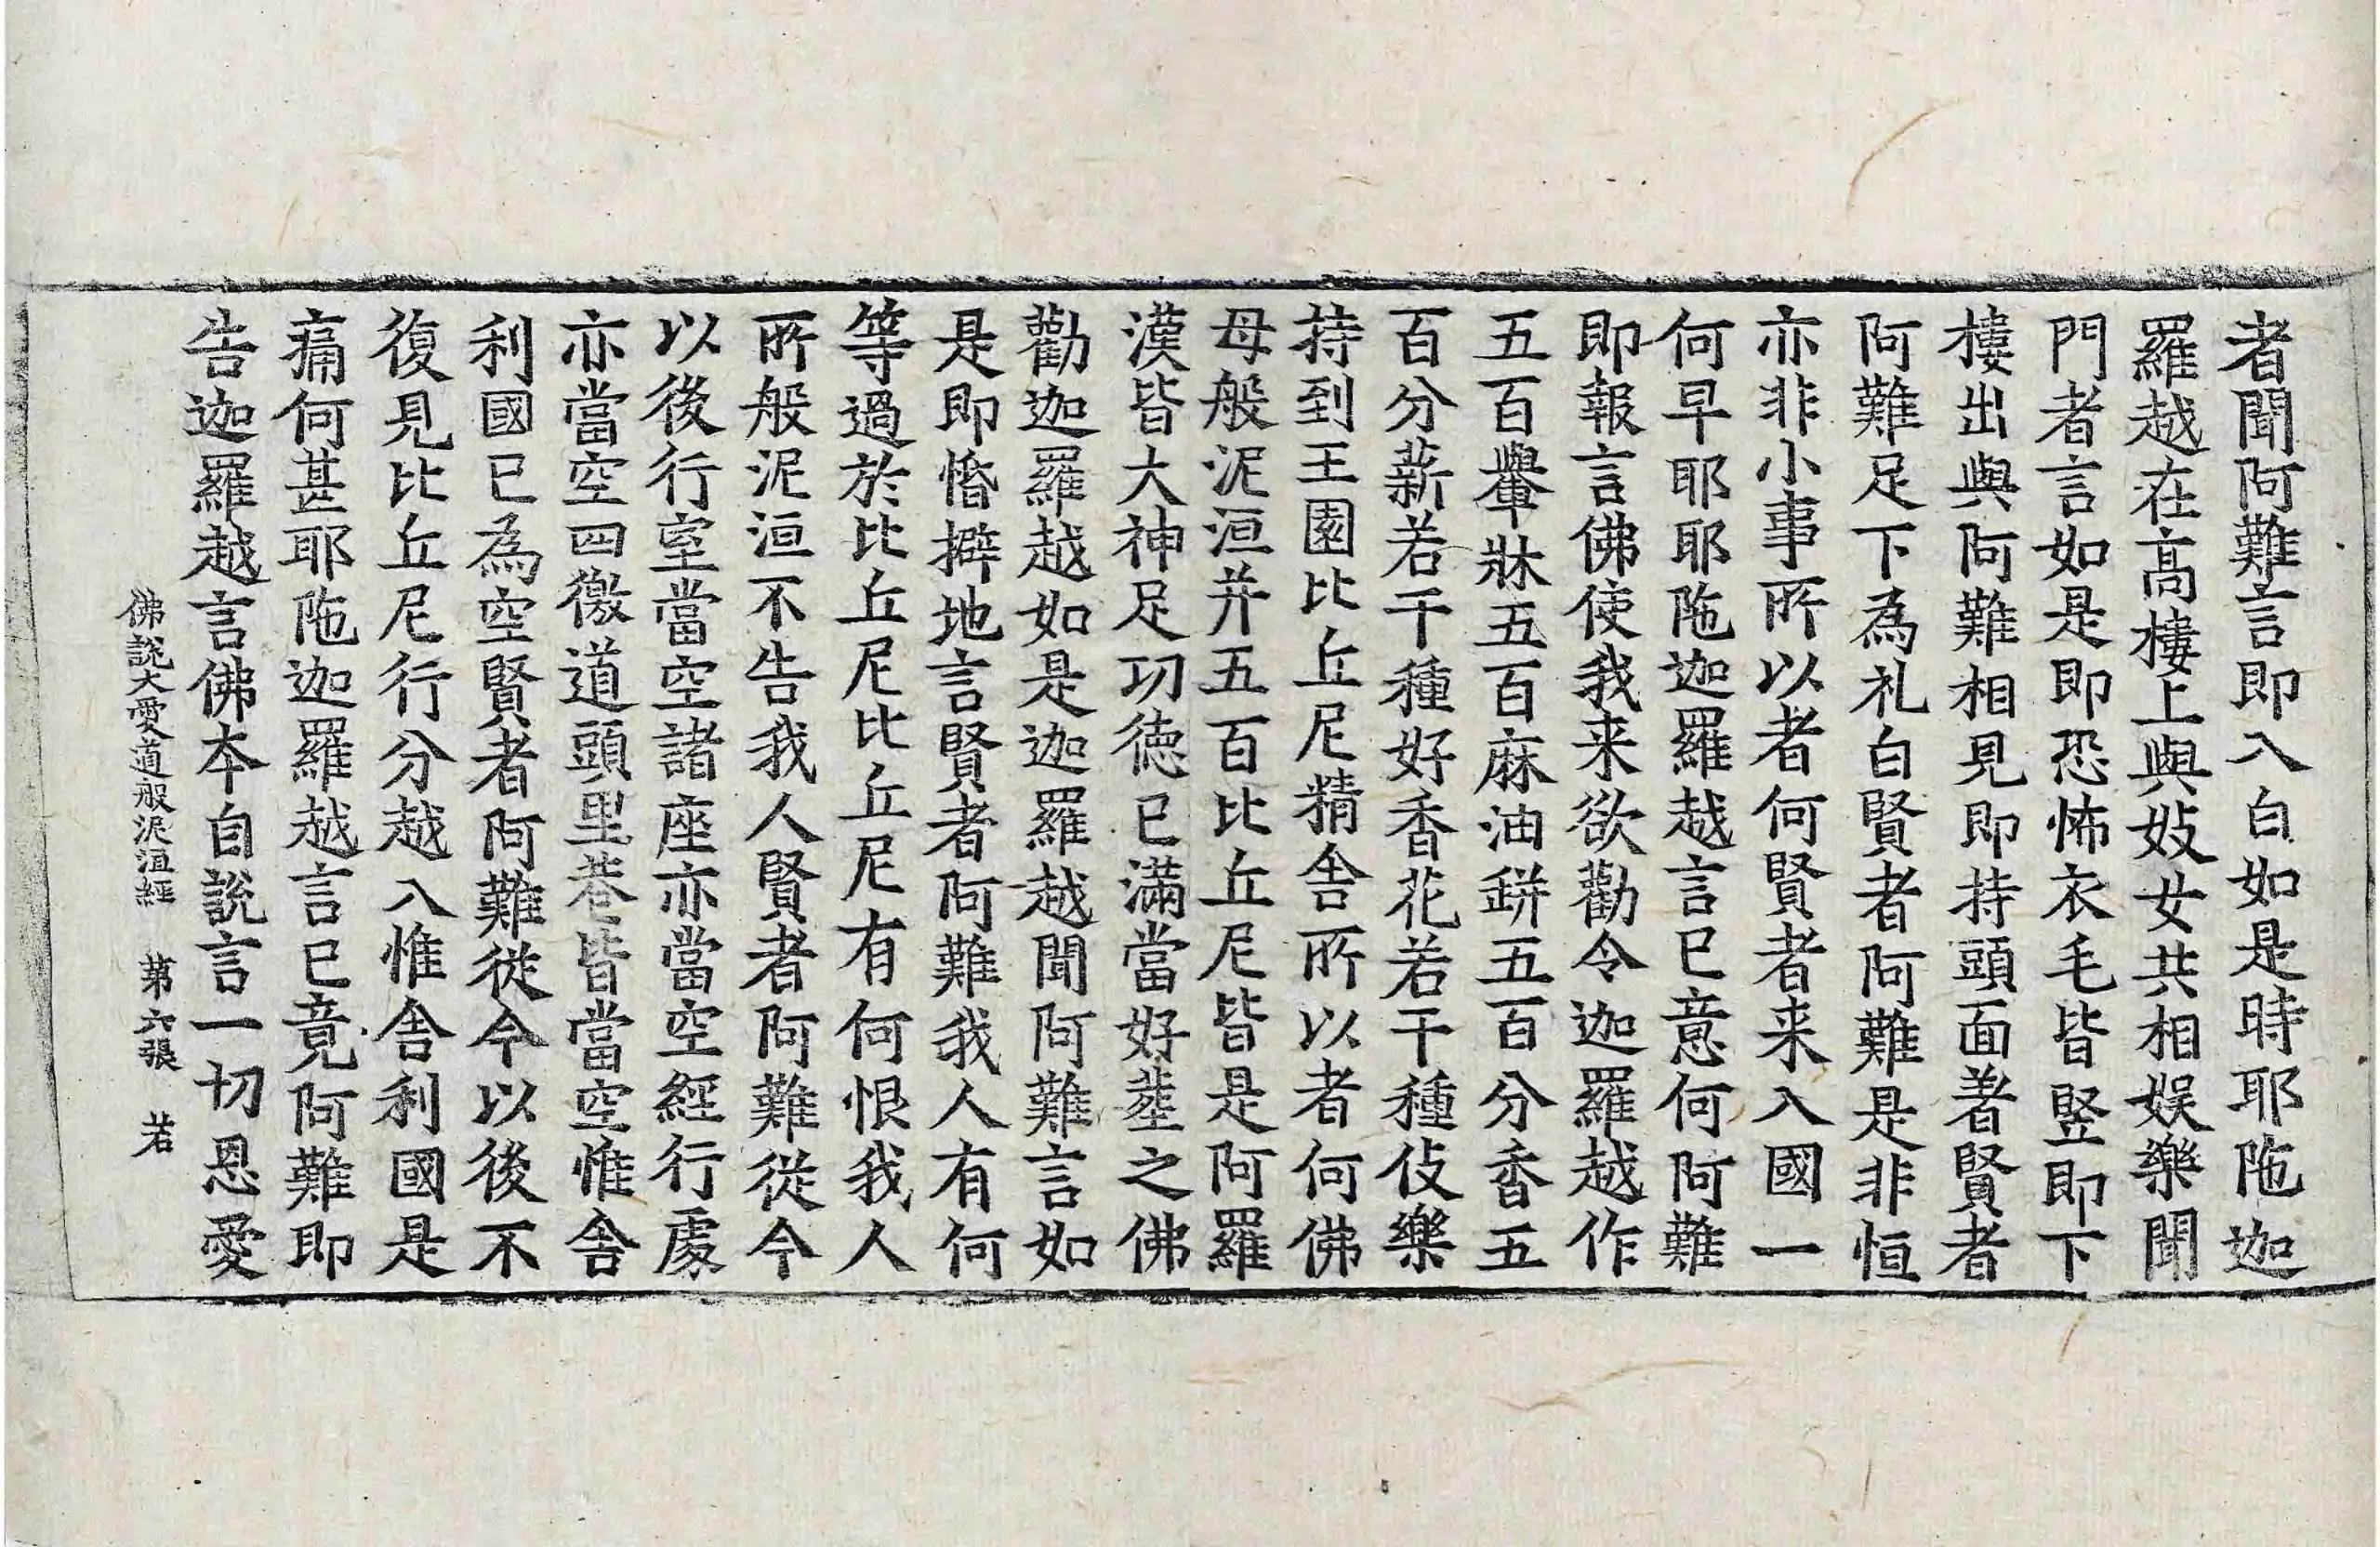 者聞阿難言即入白如是時耶陁迦
羅越在高樓上與妓女共相娛樂聞
門者言如是即恐怖衣毛皆竪即下
樓出與阿難相見即持頭面著賢者
阿難足下為礼白賢者阿難是非恒
亦非小事所以者何賢者来入國一
何早耶耶陁迦羅越言已意何阿難
即報言佛使我来欲勸令迦羅越作
五百轝牀五百麻油缾五百分香五
百分薪若干種好香花若干種伎樂
持到王園比丘尼精舍所以者何佛
母般泥洹并五百比丘尼皆是阿羅
漢皆大神足功德已滿當好葬之佛
勸迦羅越如是迦羅越聞阿難言如
是即惛擗地言賢者阿難我人有何
等過於比丘尼比丘尼有何恨我人
所般泥洹不告我人賢者阿難從今
以後行室當空諸座亦當空經行處
亦當空四徼道頭里巷皆當空惟舍
利國已為空賢者阿難從今以後不
復見比丘尼行分越入惟舍利國是
痛何甚耶陁迦羅越言已竟阿難即
告迦羅越言佛本自說言一切恩愛
佛說大愛道般泥洹經 第六張 若